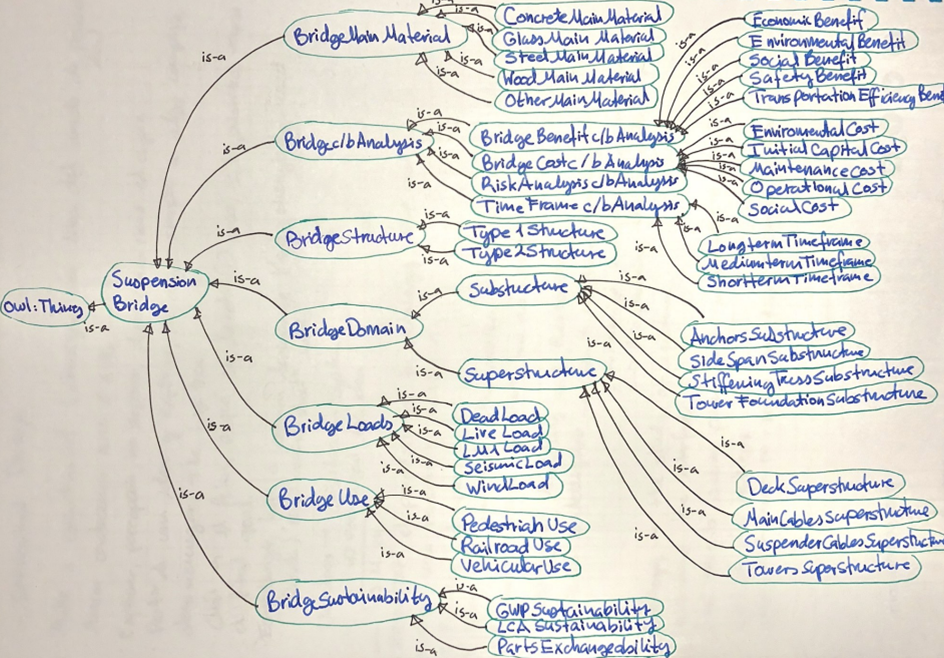 Owl:Thing
is-a
Suspension
Bridge
is-a
is-a
is-a
is-a
is-a
is-a
is-a
BridgeMainMaterial
is-a
is-a
is-a
is-a
ConcreteMainMaterial
GlassMainMaterial
SteelMainMaterial
WoodMainMaterial
OtherMainMaterial
Bridgec/bAnalysis
is-a
is-a
is-a
is-a
BridgeBenefitc/bAnalysis
BridgeCostc/bAnalysis
RiskAnalysisc/bAnalysis
TimeFramec/bAnalysis
is-a
is-a
is-a
is-a
is-a
EconomicBenefit
EnvironmentalBenefit
SocialBenefit
SafetyBenefit
TransportationEfficiencyBene
is-a
is-a
is-a
is-a
EnviromentalCost
InitialCapitalCost
MaintenanceCost
OperationalCost
SocialCost
is-a
is-a
is-a
LongtermTimeframe
MediumtermTimeframe
ShorttermTimeframe
BridgeStructure
is-a
is-a
Type1Structure
Type2Structure
BridgeDomain
is-a
is-a
Substucture
is-a
is-a
is-a
is-a
AnchorsSubstructure
SideSpanSubstructure
StiffeningTrussSubstructure
TowerFoundationSubstructure
Superstructure
is-a
is-a
is-a
is-a
DeckSuperstructure
MainCablesSuperstructure
SuspenderCablesSuperstructur
TowersSuperstructure
BridgeLoads
is-a
is-a
is-a
is-a
is-a
DeadLoad
LiveLoad
LM1Load
SeismicLoad
WindLoad
BridgeUse
is-a
is-a
is-a
PedestrianUse
RailroadUse
VehicularUse
BridgeSustainability
is-a
is-a
is-a
GWPSustainability
LCASustainability
PartsExchangeability